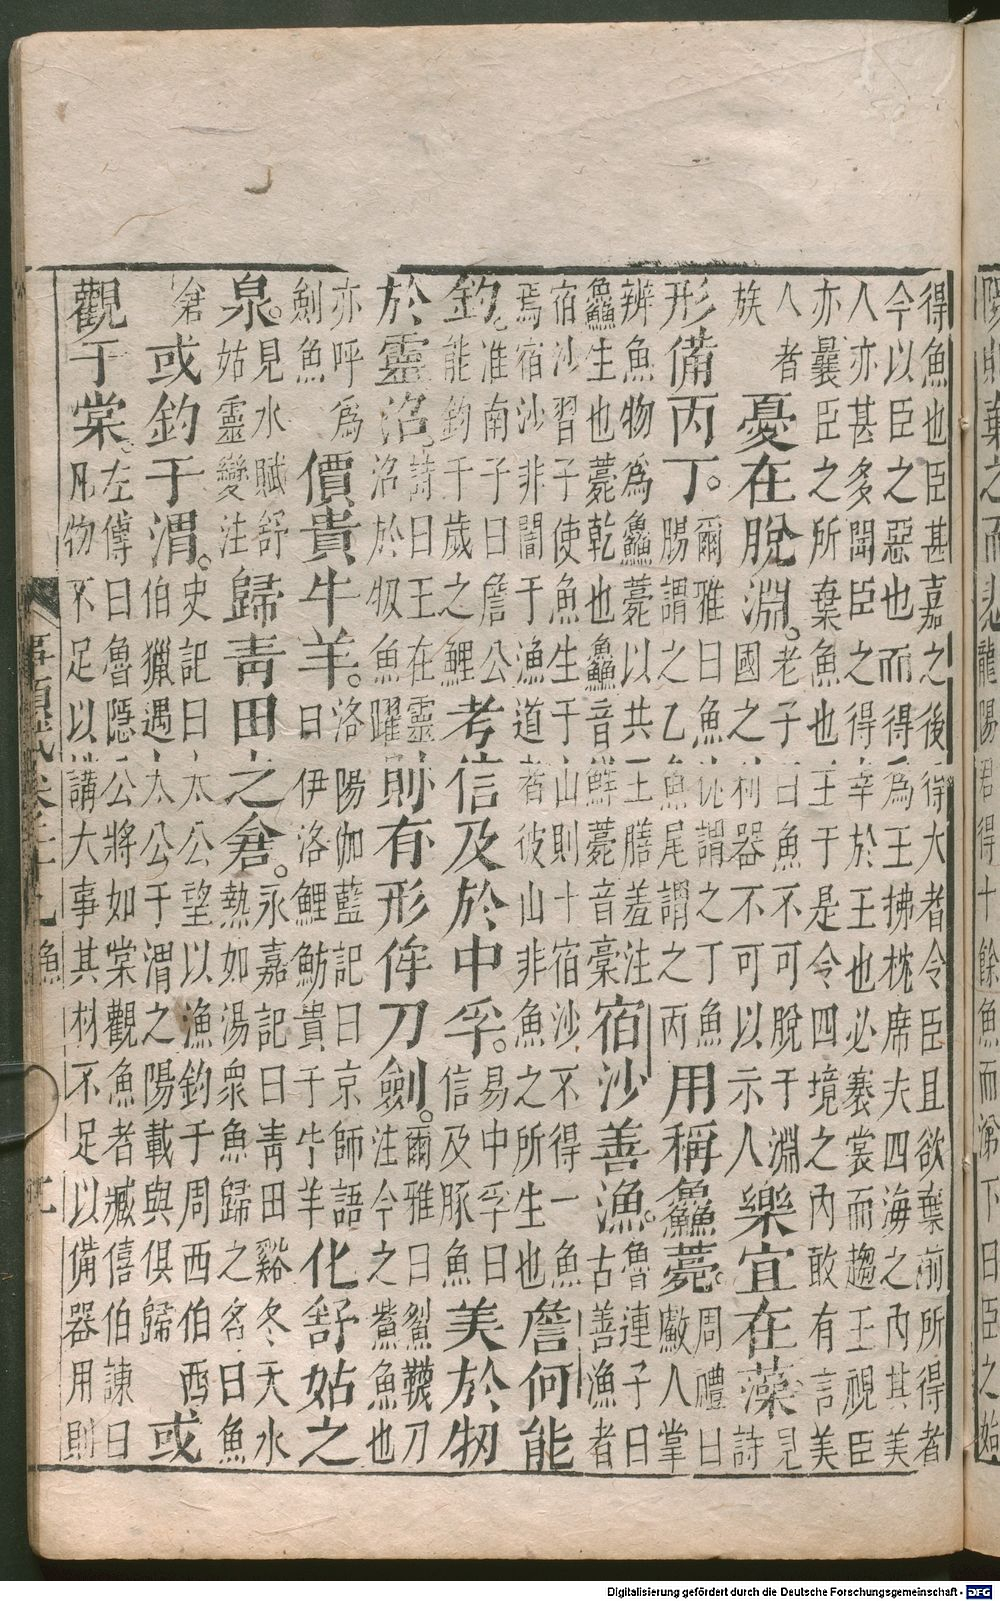 陽則棄之而悲龍陽君得十餘魚而涕下曰臣之始
得魚也臣甚嘉之後得大者令臣且欲棄前所得者
今以臣之惡也而得爲王拂枕席夫四海之內其美
人亦甚多聞臣之得幸於王也必褰裳而趨王視臣
亦曩臣之所棄魚也王于是令四境之內敢有言美
人者
族
憂在脫淵。老子曰魚不可脫于淵
國之利器不可以示人
樂宜在藻見
詩
形備丙丁。爾雅曰魚枕謂之丁魚
腸謂之乙魚尾謂之丙
用稱鱻薧。周禮曰
䱷人掌
辨魚物爲鱻薧以共王膳羞注
鱻生也薧乾也鱻音鮮薧音槀
宿沙善漁。魯連子曰
古善漁者
宿沙習子使魚生于山則十宿沙不得一魚
焉宿沙非闇于漁道者彼山非魚之所生也
詹何能
釣。淮南子曰詹公
能釣千歲之鯉
考信及於中孚。易中孚曰
信及豚魚
美於牣
於靈沼。詩曰王在靈
沼於牣魚躍
則有形侔刀劍。爾雅曰鮤鱴刀
注今之鮆魚也
亦呼爲
劍魚
價貴牛羊。洛陽伽藍記曰京師語
曰伊洛鯉魴貴于牛羊
化舒姑之
泉。見水賦舒
姑靈變注
歸青田之倉。永嘉記曰青田谿冬天水
熱如湯衆魚歸之名曰魚
倉
或釣于渭。史記曰太公望以漁釣于周西伯西
伯獵遇太公于渭之陽載與俱歸
或
觀于棠。左傳曰魯隱公將如棠觀魚者臧僖伯諫曰
凡物不足以講大事其材不足以備器用則
事類賦卷二十九 魚 二
Digitalisierung gefördert durch die Deutsche Forschungsgemeinschaft - DFG